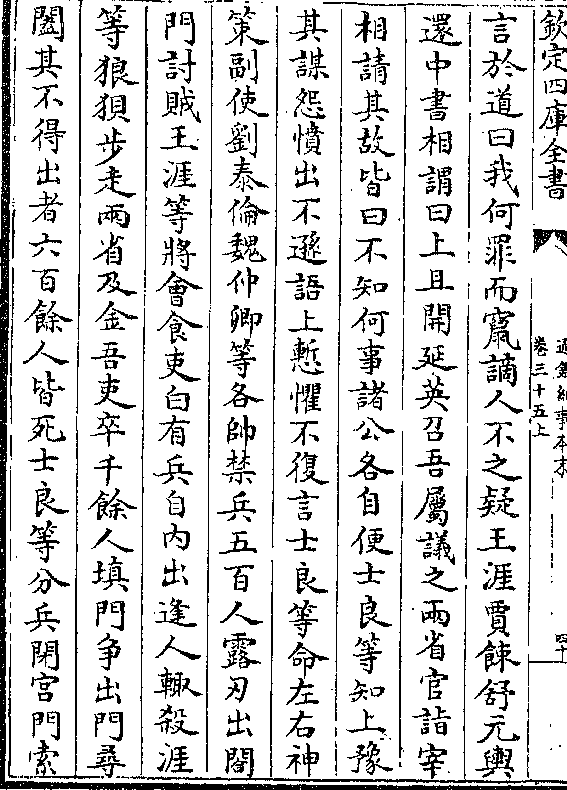 欽定四庫全書
通鑑紀事本末
卷三十五上
四十
言於道曰我何罪而竄謫人不之疑王涯賈餗舒元輿
還中書相謂曰上且開延英召吾屬議之兩省官詣宰
相請其故皆曰不知何事諸公各自便士良等知上豫
其謀怨憤出不遜語上慙懼不復言士良等命左右神
策副使劉泰倫魏仲卿等各帥禁兵五百人露刃出閤
門討賊王涯等將會食吏白有兵自內出逢人輙殺涯
等狼狽步走兩省及金吾吏卒千餘人填門争出門尋
闔其不得出者六百餘人皆死士良等分兵閉宫門索